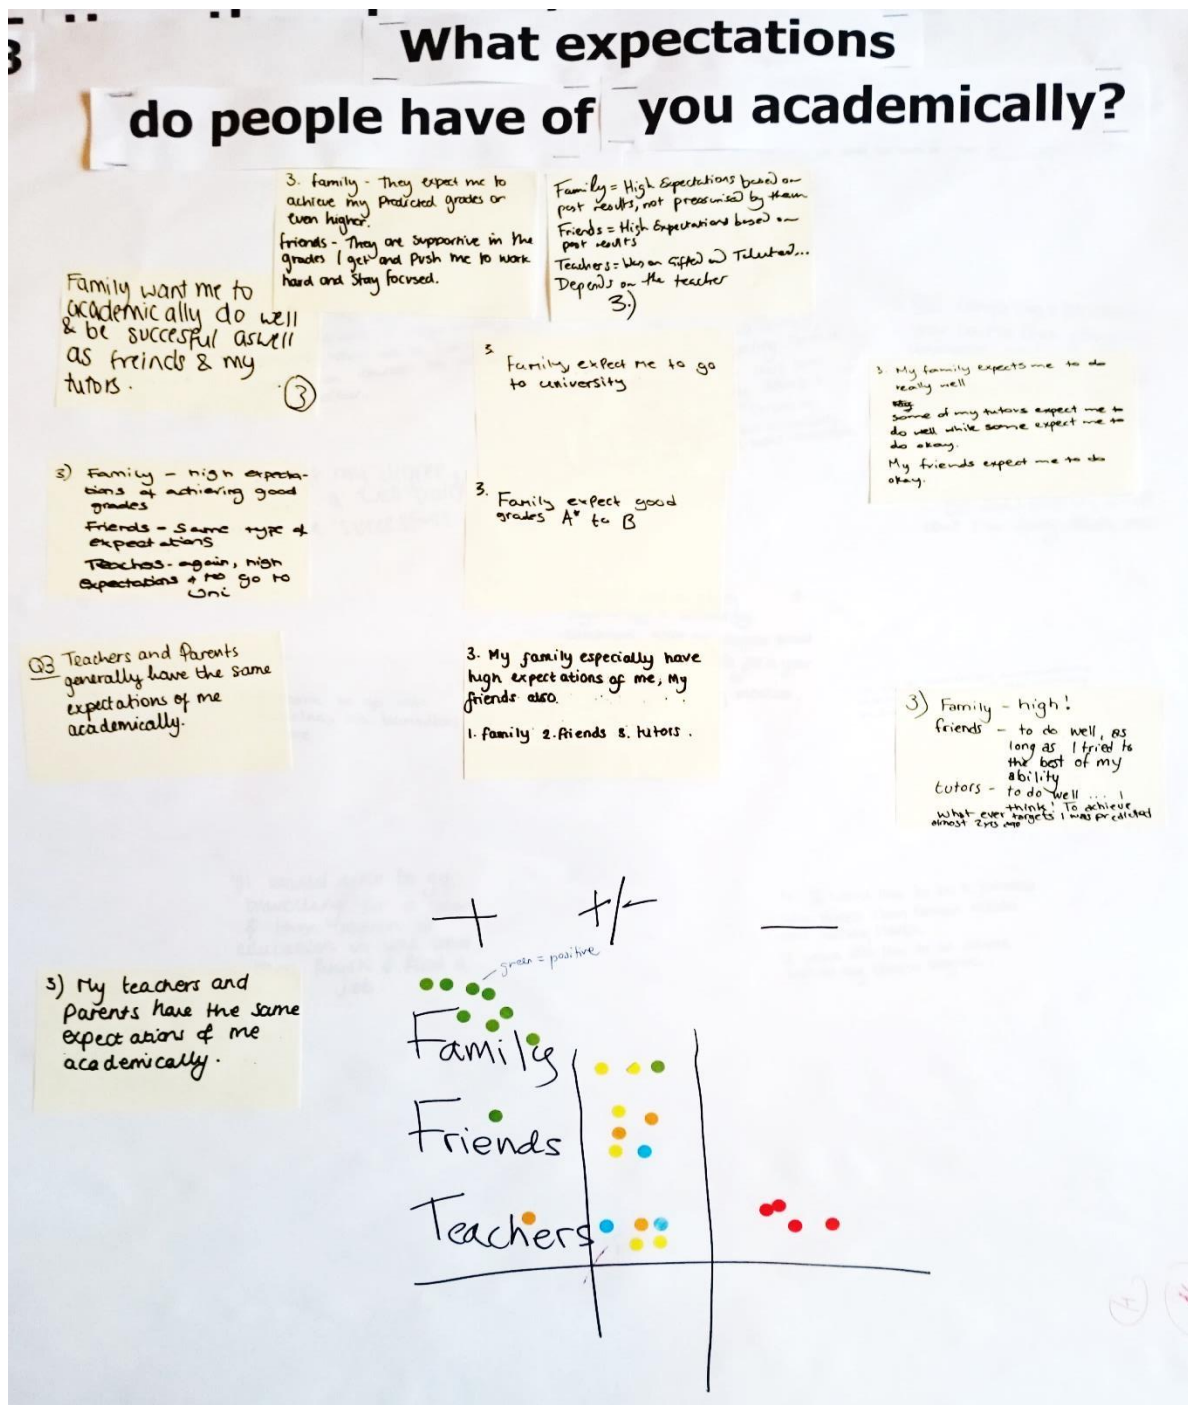 3
What expectations
do people have of you academically?
3. family - They expect me to
achieve my Predicted grades or
even higher.
friends - They are supportive in the
grades I get and Push me to work
hard and Stay focused.
Family = High Expectations based on
past results, not pressurised by them
Friends = High Expectations based on
past results
Teachers = on Gifted Talented...
Depends on the teacher
3.)
Family want me to
academically do well
& be succesful aswell
as freinds & my
tutors.
3
3.
Family, expect me to go
to university
3. My family expects me to do
really well
some of my tutors expect me to
do well while some expect me to
do okay.
My friends expect me to do
okay.
3) Family - high expecta-
tions of achieving good
grades
Friends - Same type of
expectations
Teachers - again, high
expectations + to go to
Uni
3.
Family expect good
grades A* to B
Q3 Teachers and Parents
generally have the same
expectations of me
academically.
3. My family especially have
high expectations of me, My
friends also.
1. family 2. friends 3. tutors.
3) Family - high!
friends - to do well, as
long as I tried to
the best of my
ability
tutors - to do well ... I
think! To achieve
what ever targets I was predicted
almost 2yrs ago
+ +/- -
green = positive
3) My teachers and
Parents have the same
expectations of me
academically.
Family
Friends
Teachers